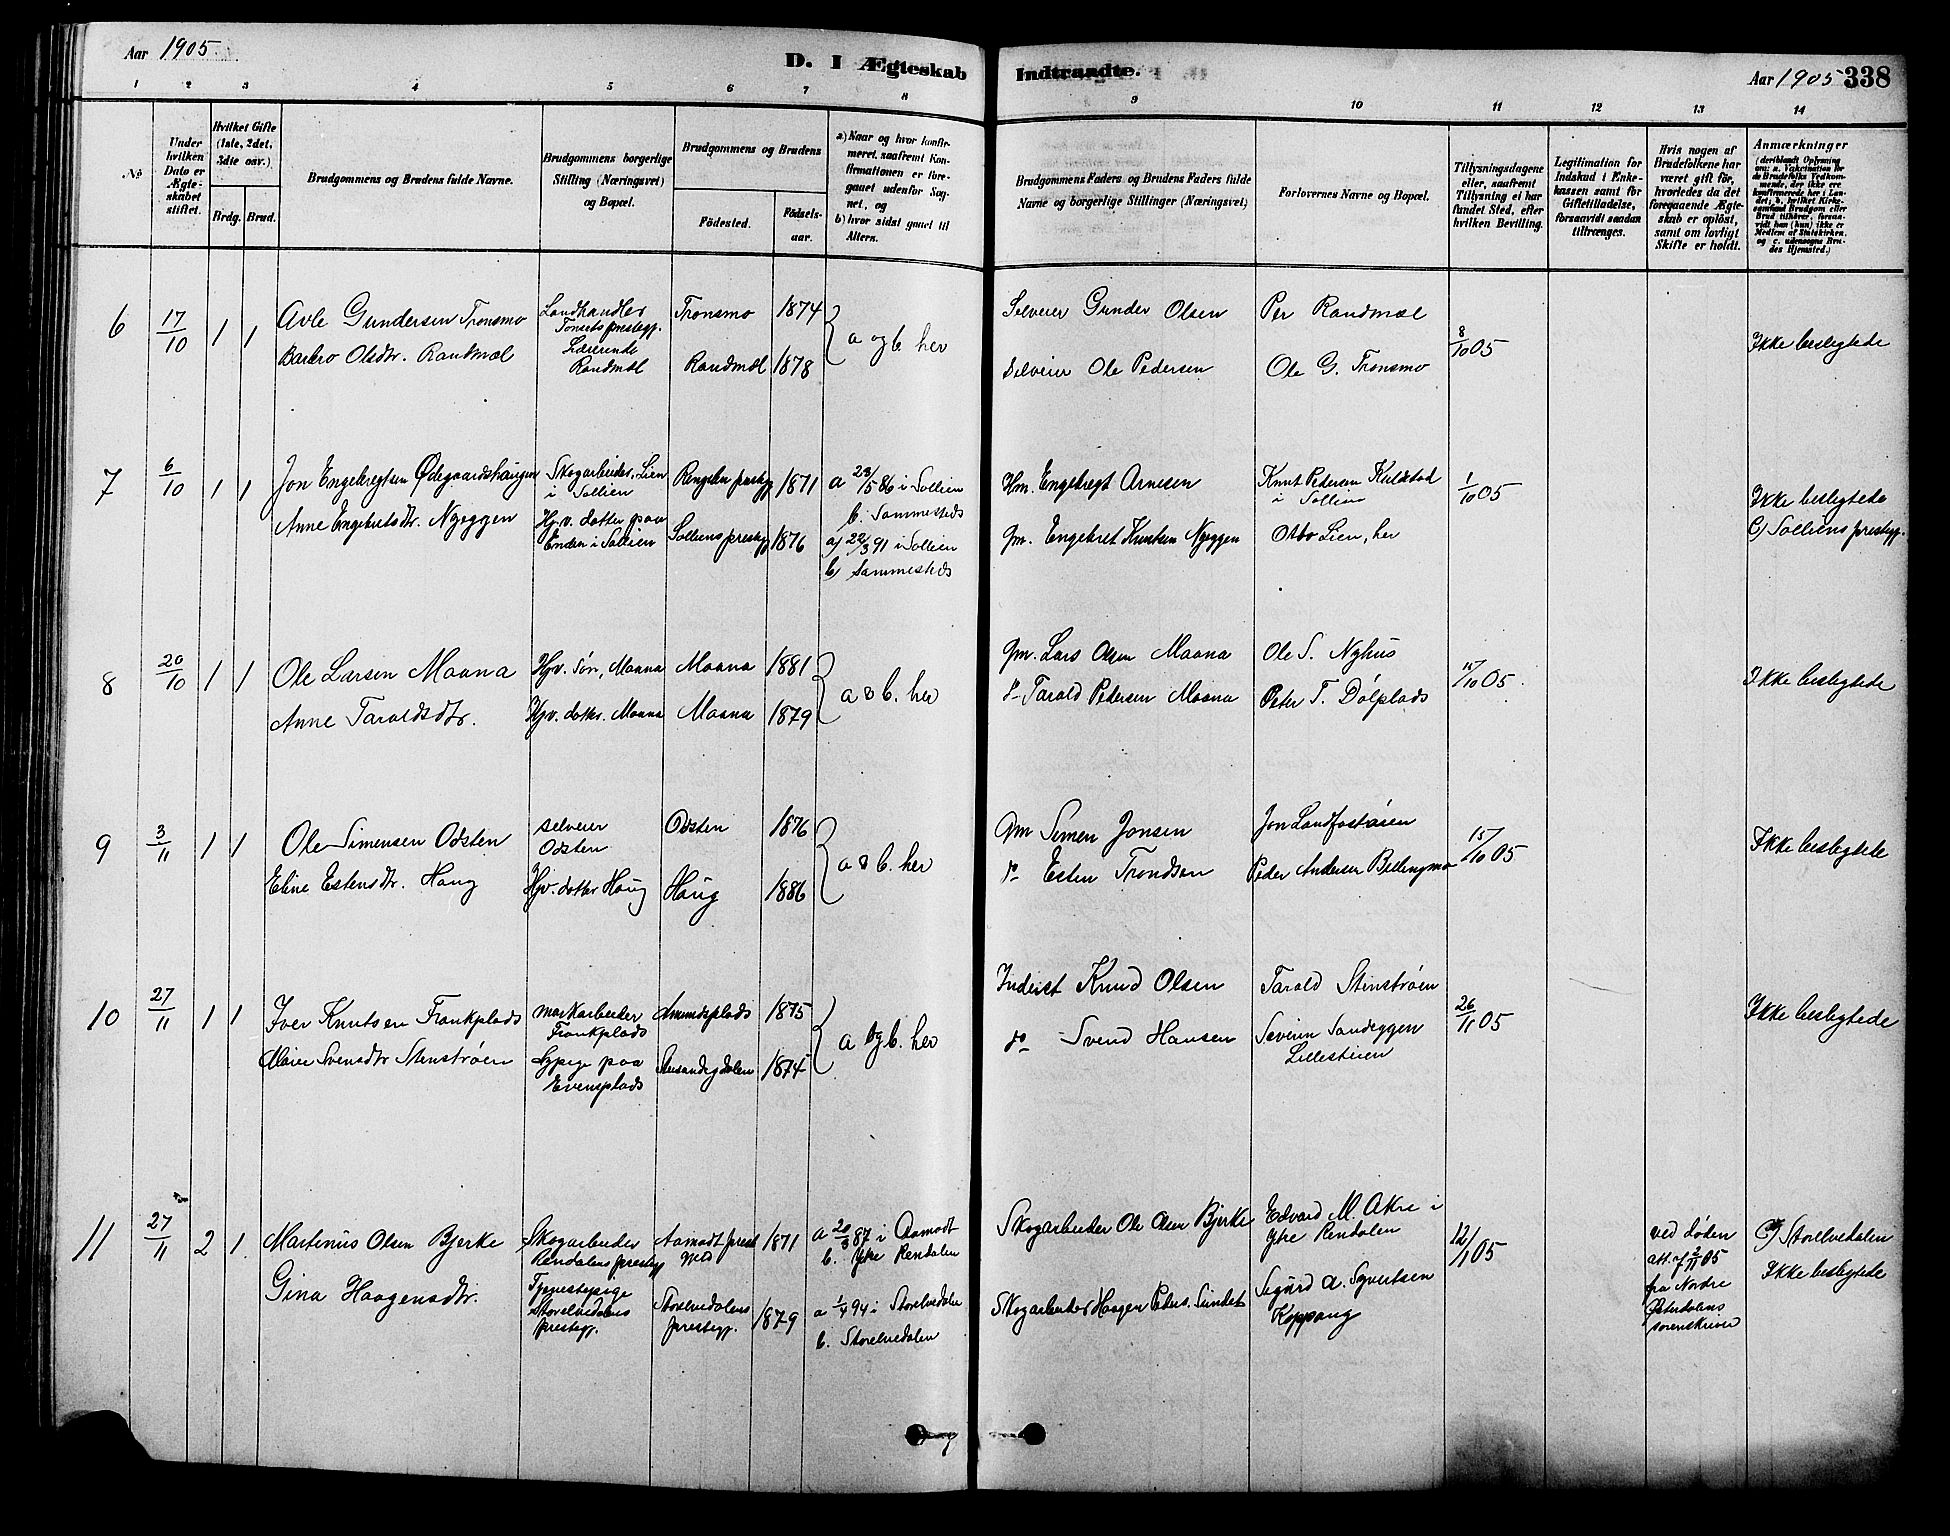 Aar 1905
D. I Ægteskab Indtraadte.
Aar 1905 338
1 2 3 4 5 6 7 8 9 10 11 12 13 14
No
Under hvilken Dato er Ægteskabet stiftet.
Hvilket Gifte (1ste, 2det, 3die osv.)
Brdg. Brud.
Brudgommens og Brudens fulde Navne.
Brudgommens borgerlige Stilling (Næringsvei) og Bopæl.
Brudgommens og Brudens
Födested. Födselsaar.
a) Naar og hvor konfirmeret, saafremt Konfirmationen er foregaaet udenfor Sognet, og
b) hvor sidst gaaet til Alters.
Brudgommens Faders og Brudens Faders fulde Navne og borgerlige Stillinger (Næringsvei)
Forlovernes Navne og Bopæl.
Tillysningsdagene eller, saafremt Tillysning ei har fundet Sted, efter hvilken Bevilling.
Legitimation for Indskud i Enkekassen samt for Giftetilladelse, forsaavidt saadan tiltrænges.
Hvis nogen af Brudefolkene har været gift för, hvorledes da det foregaaende Ægteskab er oplöst, samt om lovligt Skifte er holdt.
Anmærkninger
6 17/10 1 1
Avle Gundersen Tronsmo
Landhandler Tonsets prestegj.
Tronsmo 1874
Barbro Olsdtr. Randmæl
Lærerinde Randmæl
Randmæl 1878
a og b. her
Selveier Gunder Olsen
Selveier Ole Pedersen
Per Randmæl
Ole G. Tronsmo
8/10 05
Ikke beslegtede
7 6/10 1 1
Jon Engebregtsen Ødegaardshaugen
Skogarbeider, Lien i Sollien
1871
a 23/5 86 i Sollien
b. Sammesteds
Anne Engebretsdtr. Nyeggen
Hjv. datter paa Enden i Sollien
Solliens prestegj 1876
a) 22/3 91 i Sollien
b) Sammesteds
Hm. Engebregt Arnesen
Gm. Engebret Knutsen Nyeggen
Knut Pedersen Kuldstad i Sollien
Otto Lien, her
1/10 05
Ikke beslegtede
c) Solliens prestegj.
8 20/10 1 1
Ole Larsen Maana
Hjv. Søn, Maana
Maana 1881
Anne Taraldsdtr.
Hjv. datter. Maana
Maana 1879
a & b. her
Gm. Lars Olsen Maana
do Tarald Pedersen Maana
Ole S. Nyhus
Peter T. Dølplads
15/10 05.
Ikke beslegtede
9 3/11 1 1
Ole Simensen Odsten
selveier Odsten
Odsten 1876
Eline Estensdtr. Haug
Hjv. datter Haug
Haug 1886
a & b. her
Gm Simen Jonsen
do Esten Trondsen
Jon Landfastøien
Peder Andersen Bellingmo
15/10 05
Ikke beslegtede
10 27/11 1 1
Iver Knutsen Frankplads
Markarbeider Frankplads
Amundsplads 1875
Marie Svensdtr Stenstrøen
Sypige paa Evensplads
1874
a og b. her
Inderst Knud Olsen
do Svend Hansen
Tarald Stenstrøen
Severin Sandeggen Lillestuen
26/11 05
Ikke beslegtede
11 27/11 2 1.
Martinus Olsen Bjerke
Skogarbeider Rendalens prestegj
Aamodt prestegjeld 1871
a 20/3 87 i Aamodt
b. Ytre Rendalen
Gina Haagensdtr.
Tjenestepige Storelvedalens prestegj.
Storelvedalens prestegj. 1879
a 1/4 94 i Storelvedalen
b. Storelvedalen
Skogarbeider Ole Olsen Bjerke
Skogarbeider Haagen Peders. Sundet
Edvard M. Akre i Ytre Rendalen
Sigurd A. Syvertsen Koppang
12/11 05
ved døden
att. af 2/11 05
fra Nordre
Østerdalens
sorenskriver
c) Storelvedalen
Ikke beslegtede